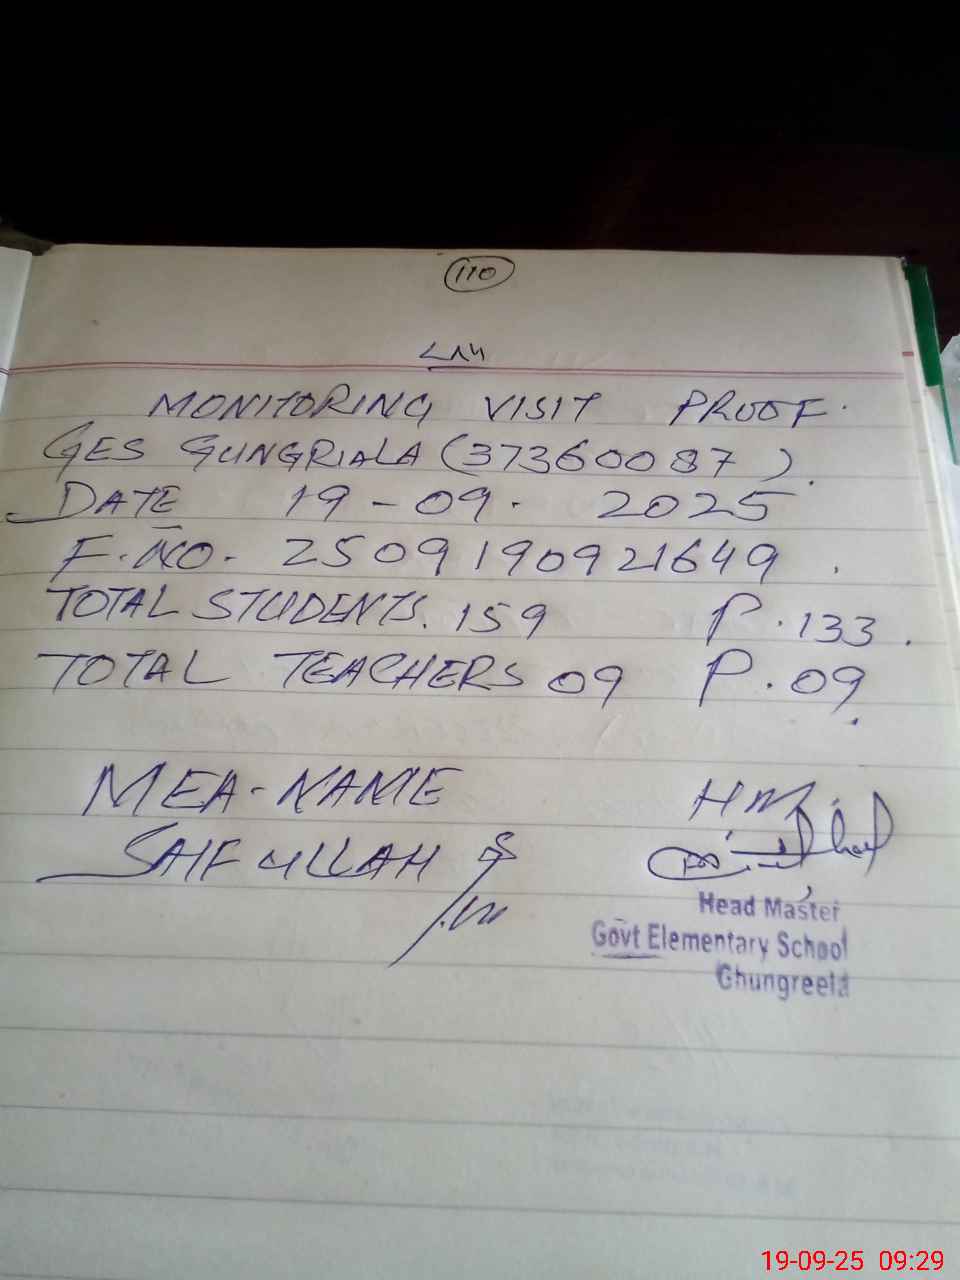 110
MONITORING VISIT PROOF.
GES GUNGRIALA (37360087).
DATE 19-09-2025
F.NO. 2509190921649.
TOTAL STUDENTS. 159 P.133.
TOTAL TEACHERS 09 P.09.
MEA-NAME
SAIFULLAH
HM
Head Master
Govt Elementary School
Ghungreela
19-09-25 09:29